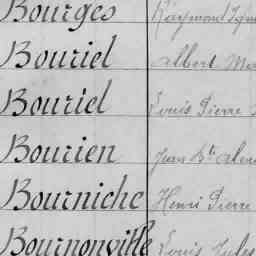 Bourges Raymond
Bouriel Albert
Bouriel Louis Pierre
Bourien Jean
Bourniche Henri Pierre
Bournonville Louis Jules